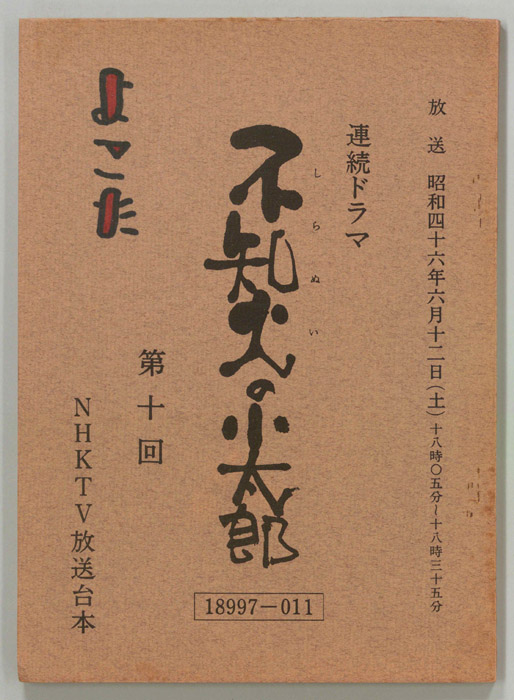 放送 昭和四十六年六月十二日(土)十八時〇五分~十八時三十五分
連続ドラマ
しらぬい
不知火の小太郎
第十回
NHKTV放送台本
よこた
18997-011